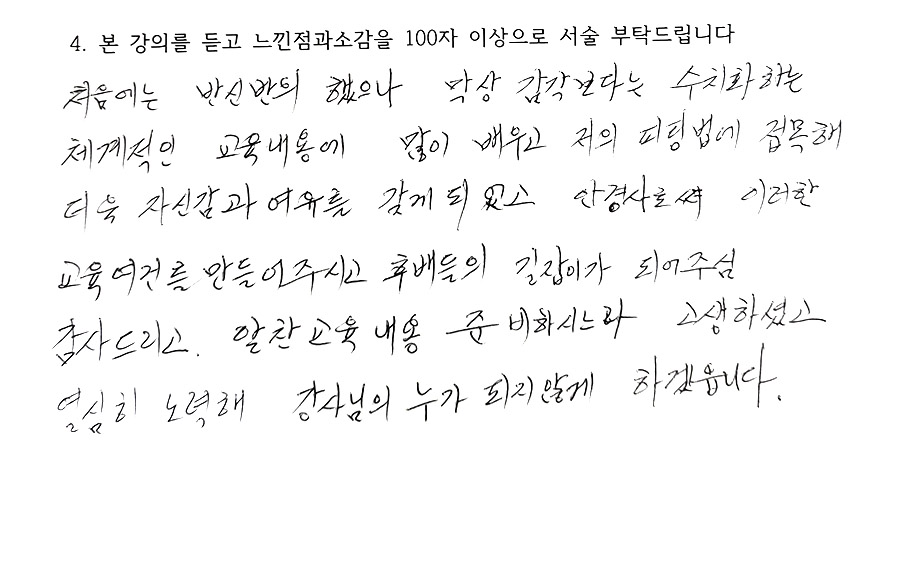 4. 본 강의를 듣고 느낀점과소감을 100자 이상으로 서술 부탁드립니다
처음에는 반신반의 했으나 막상 감각보다는 수치화하는
체계적인 교육내용에 많이 배우고 저의 피팅법에 접목해
더욱 자신감과 여유를 갖게 되었고 안경사로써 이러한
교육여건를 만들어주시고 후배들의 길잡이가 되어주심
감사드리고. 알찬교육내용 준비하시느라 고생하셨고
열심히 노력해 강사님의 누가 되지않게 하겠읍니다.